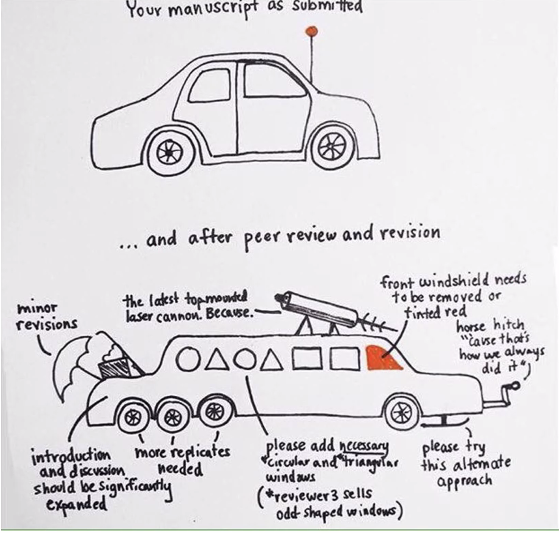 Your manuscript as submitted
... and after peer review and revision
minor
revisions
the latest top mounted
laser cannon. Because.
front windshield needs
to be removed or
tinted red
horse hitch
"cause that's
how we always
did it")
introduction
and discussion
should be significantly
expanded
more replicates
needed
please add necessary
*circular and *triangular
windows
(*reviewer 3 sells
odd shaped windows)
please try
this alternate
approach